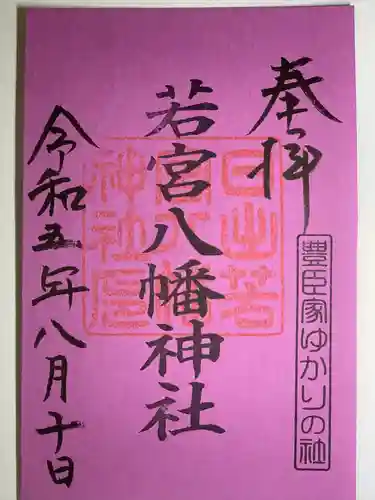 奉拝
豊臣家ゆかりの社
若宮八幡神社
日出若
宮八幡
神社璽
令和五年八月十日